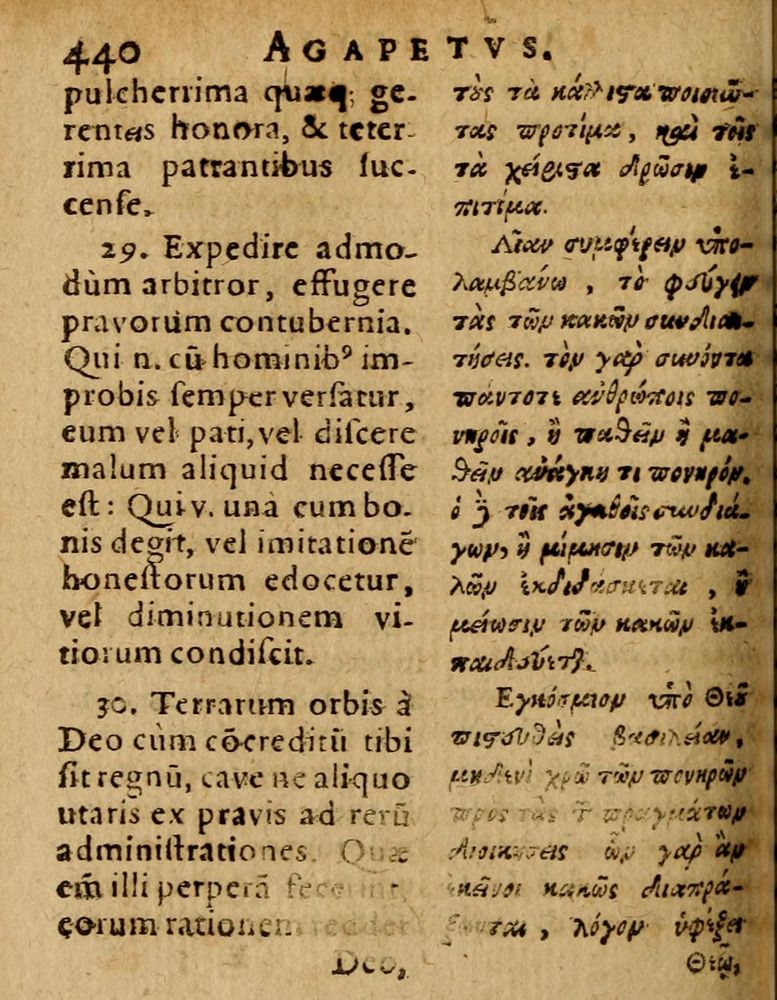 440 AGAPETVS.
pulcherrima quæq; ge-
rentes honora, & teter-
rima patrantibus ſuc-
cenſe.
29. Expedire admo-
dùm arbitror, effugere
pravorum contubernia.
Qui n. cū hominibꝰ im-
probis ſemper verſatur,
eum vel pati, vel diſcere
malum aliquid neceſſe
eſt: Qui v. unà cum bo-
nis degit, vel imitationē
honeſtorum edocetur,
vel diminutionem vi-
tiorum condiſcit.
30. Terrarum orbis à
Deo cùm cōcreditū tibi
ſit regnū, cave ne aliquo
utaris ex pravis ad rerū
adminiſtrationes. Quæ
em̃ illi perperā
eorum rationem
Deo,
τὸς τὰ κάλλιϛα ποιοιῶ-
τας προτίμα, καὶ τοῖς
τὰ χείριϛα δρῶσιν ἐ-
πιτίμα.
Λίαν συμφέρειν ὑπο-
λαμβάνω, τὸ φεύγειν
τὰς τῶν κακῶν συνδιαι-
τήσεις. τὸν γαρ σκυόντα
πάντοτε ἀνθρώποις πο-
νηροῖς, ἢ παθεῖν ἢ μα-
θεῖν ἀνάγκη τι πονηρόν.
ὁ ȝ τοῖς ἀγαθοῖς συνδιά-
γων, ἢ μίμησιν τῶν κα-
λῶν ἐκδιδάσκεται, ἢ
μείωσιν τῶν κακῶν ἐκ-
παιδεύεται.
Εγκόσμιον ὑπὸ Θεοῦ
πιϛευθεὶς βασιλείαν,
μηδενὶ χρῶ τῶν πονηρῶν
πρὸς τὰς τ πραγμάτων
διοικήσεις ὧν γαρ ἂν
ἐκεῖνοι κακῶς διαπρά-
ξωνται, λόγον ὑφέξει
Θεῷ,